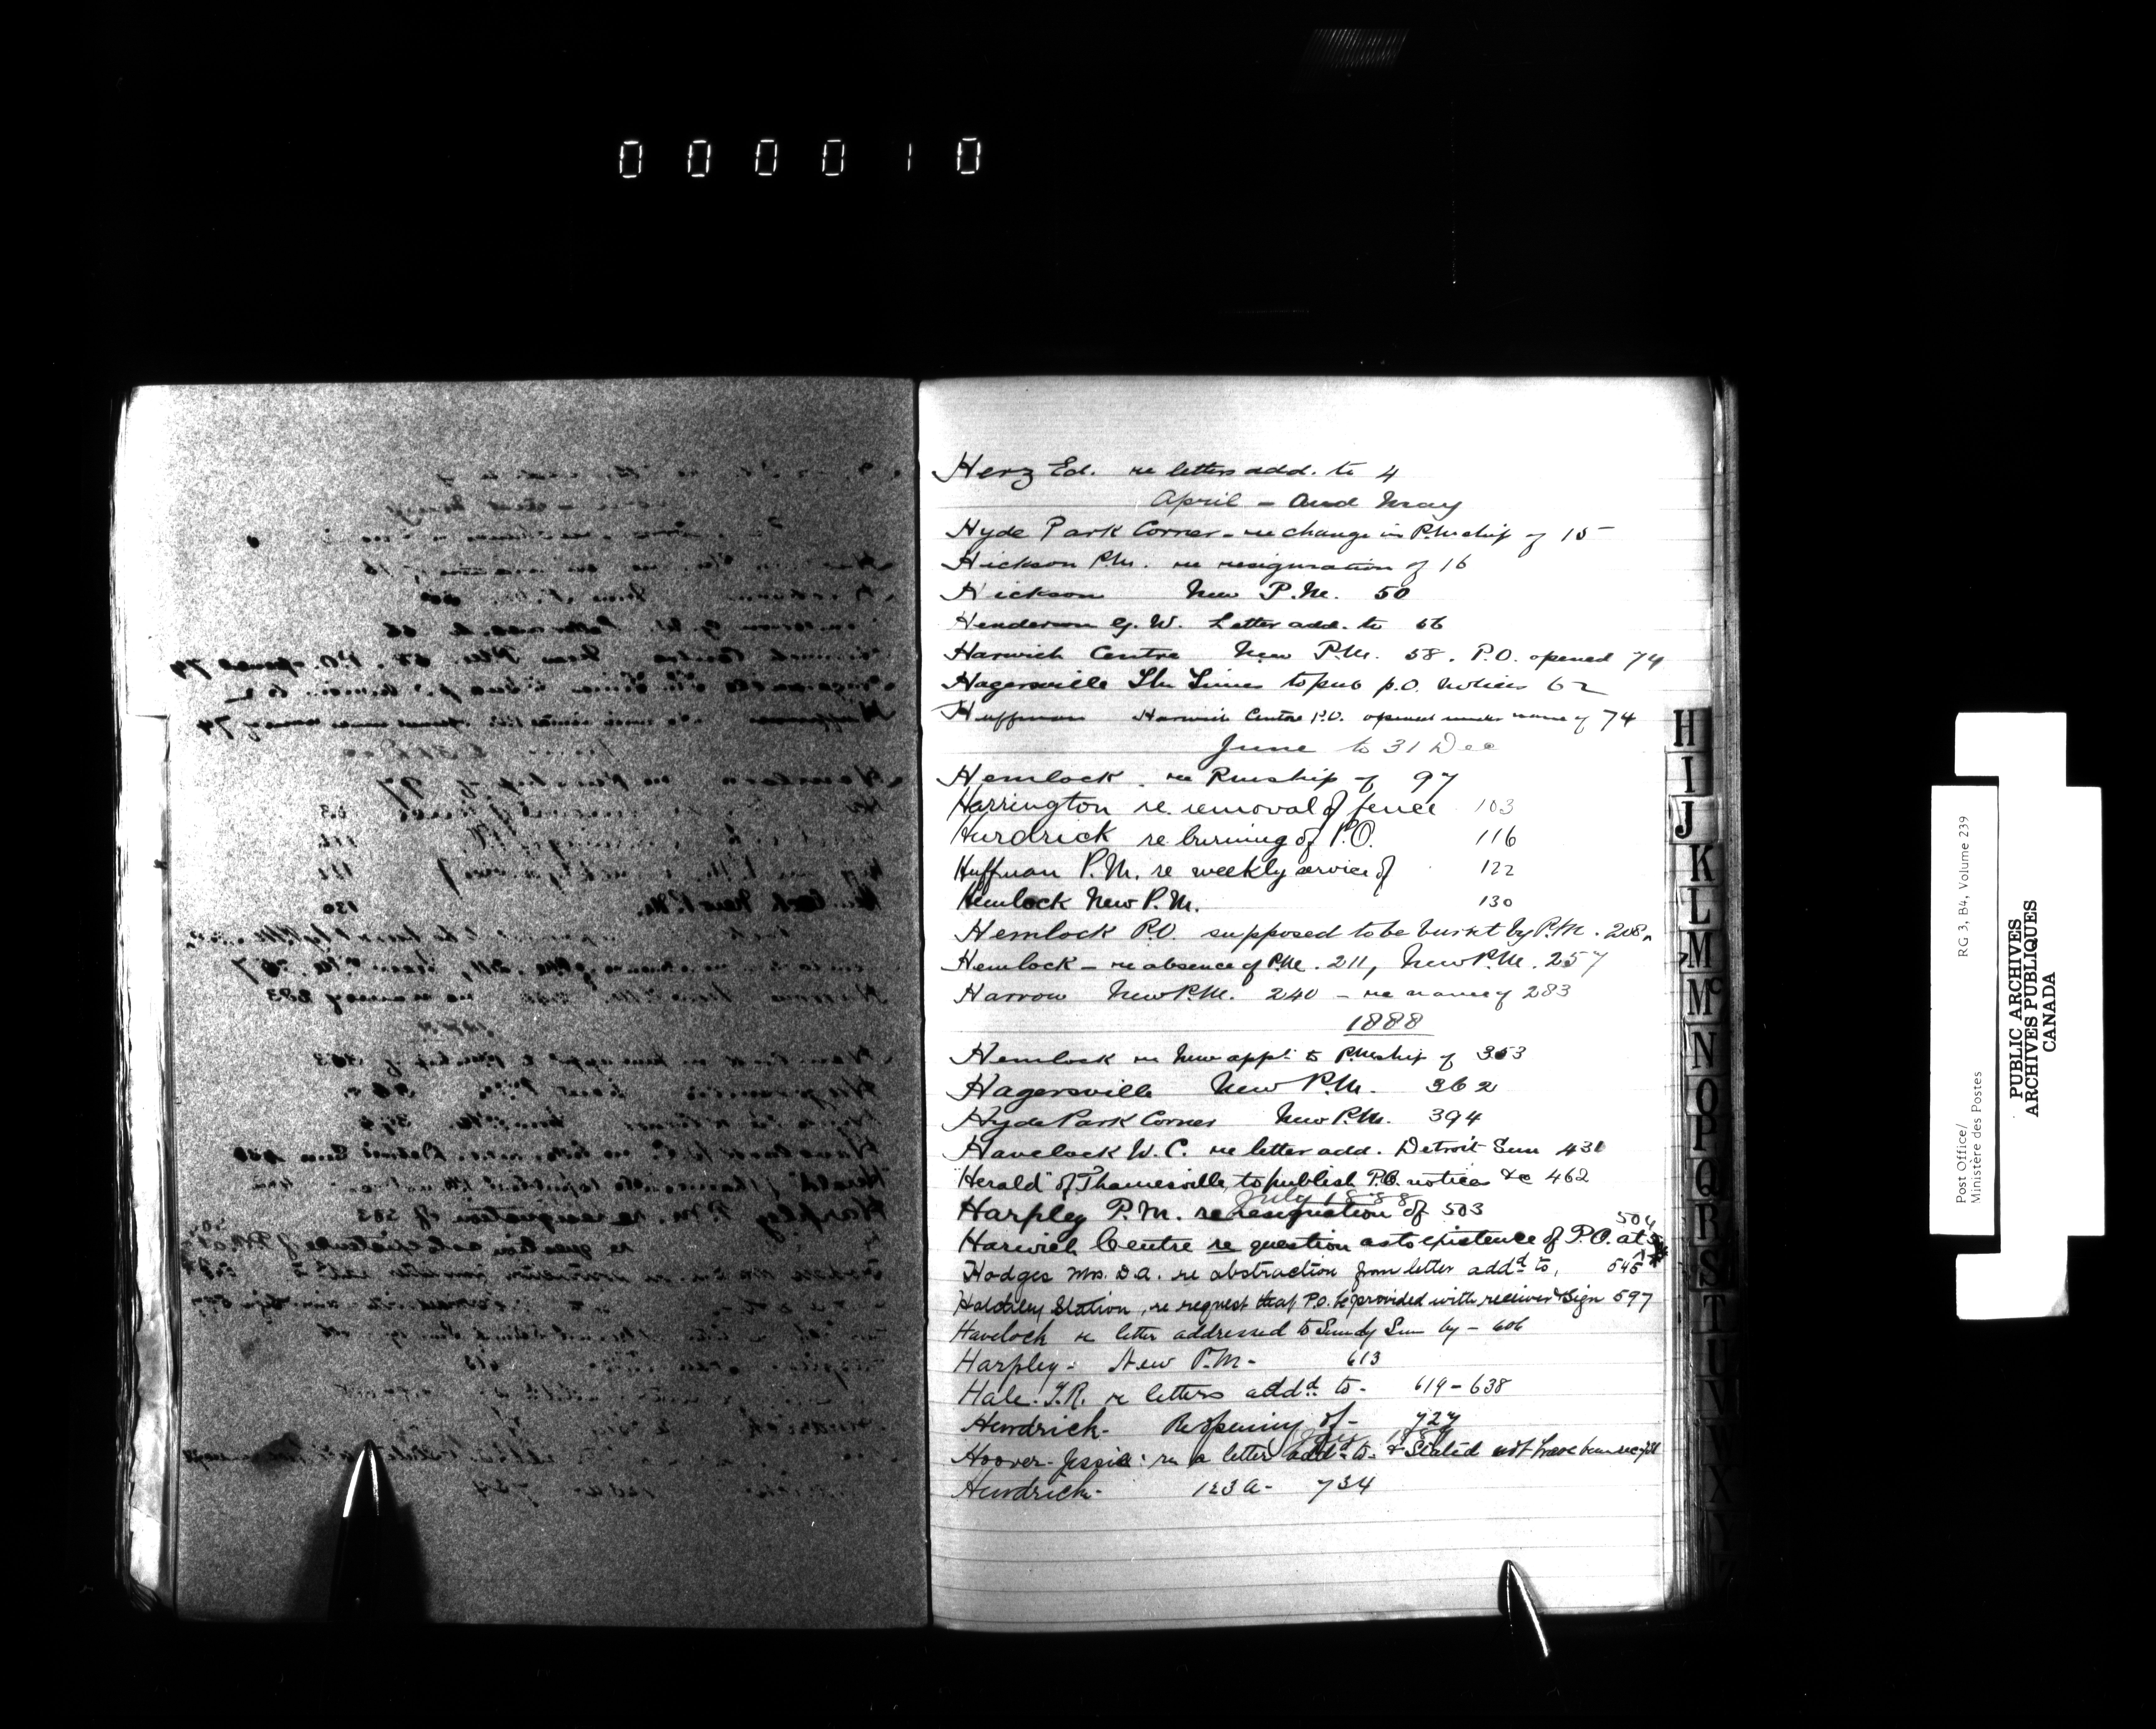 000010
Herz Ed. re letters add. to 4
April - and May
Hyde Park Corner - re change in P.Mship of 15
Hickson P.M. re resignation of 16
Hickson New P.M. 50
Henderson G. W. Letter add. to 56
Harwich Centre New P.M. 58. P.O. opened 74
Hagersville The Times to pub p.O. Notices 62
Huffman Harwich Centre P.O. opened under name of 74
June to 31 Dec
Hemlock re Pmship of 97
Harrington re. removal of fence 103
Hurdrick re burning of P.O. 116
Huffman P.M. re weekly service of 122
Hemlock New P.M. 130
Hemlock P.O. supposed to be burnt by P.M. 208
Hemlock - re absence of P.M. 211, New P.M. 257
Harrow New P.M. 240 - re name of 283
1888
Hemlock re New appt. to P.Mship of 353
Hagersville New P.M. 362
Hyde Park Corner New P.M. 394
Havelock W. C. re letter add. Detroit Sun 431
"Herald" of Thamesville, to publish P.O. notices &c 462
July 1888
Harpley P.M. re resignation of 503
Harwich Centre re question as to existence of P.O. at 504
Hodges Mrs. D.A. re abstraction from letter addd to, 545
Station, re request that P.O. be provided with receiver & Sign 597
Havelock re letter addressed to Sundy Sun by - 606
Harpley - New P.M. - 613
Hale. T.R. re letters addd to - 619 - 638
Hendrick - Reopening of - 727
Hoover - Jessie: re a letter addd to - & Stated not have been recd
Hendrick - 123a - 734
H
I
J
K
L
M
Mc
N
O
P
Q
R
S
T
U
V
W
X
Y
Post Office/
Ministère des Postes
RG 3, B4, Volume 239
PUBLIC ARCHIVES
ARCHIVES PUBLIQUES
CANADA